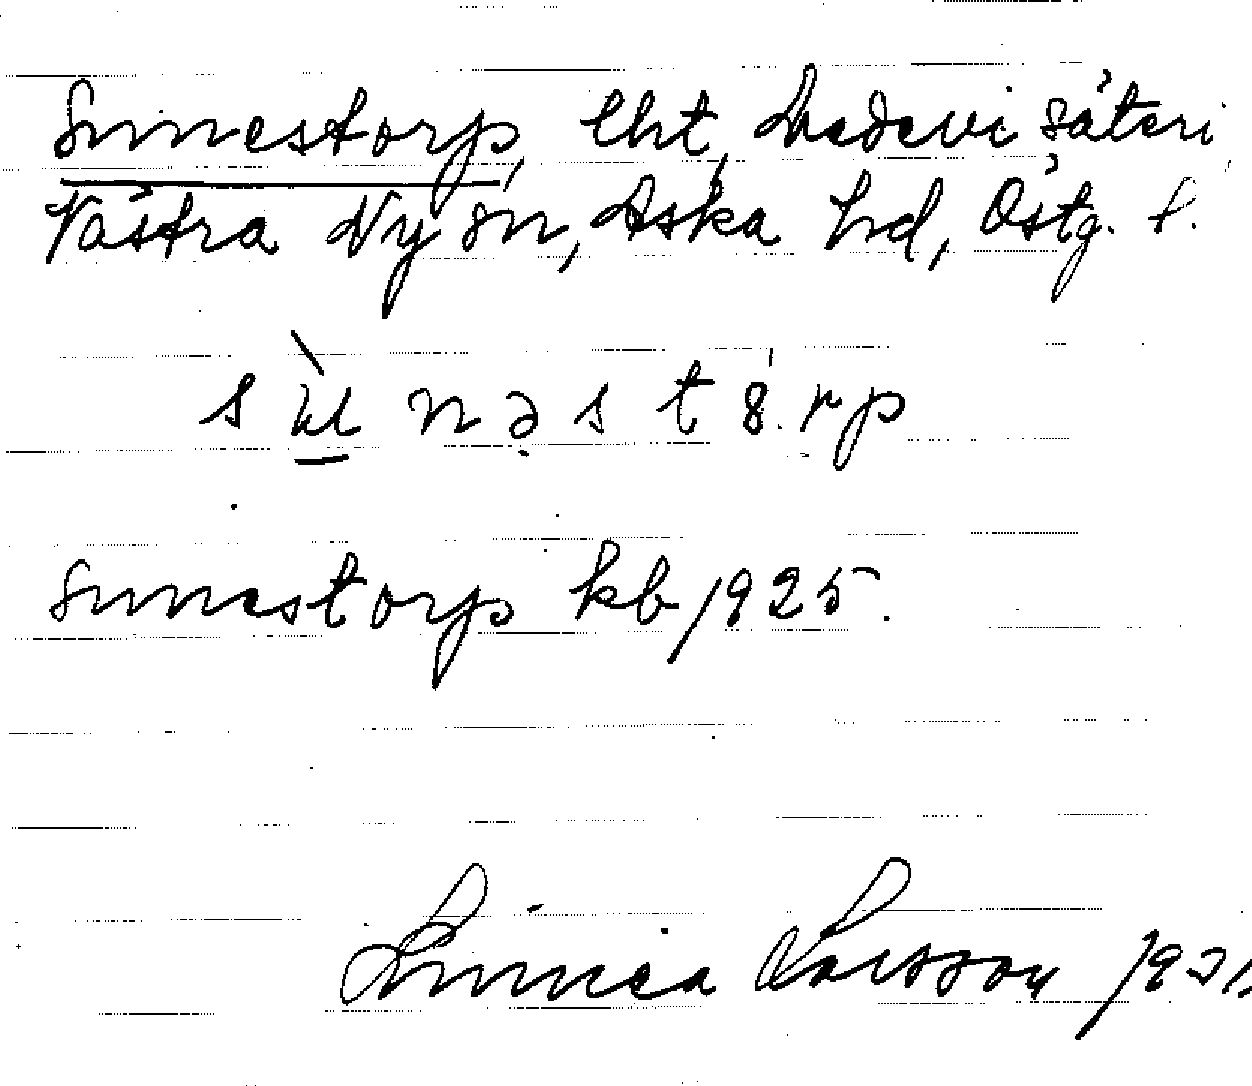 Sunnestorp, lht, Medevi säteri,
Västra Ny sn, Aska hd, Östg. l.
Sunnestorp kb 1925.
Linnea Larsson